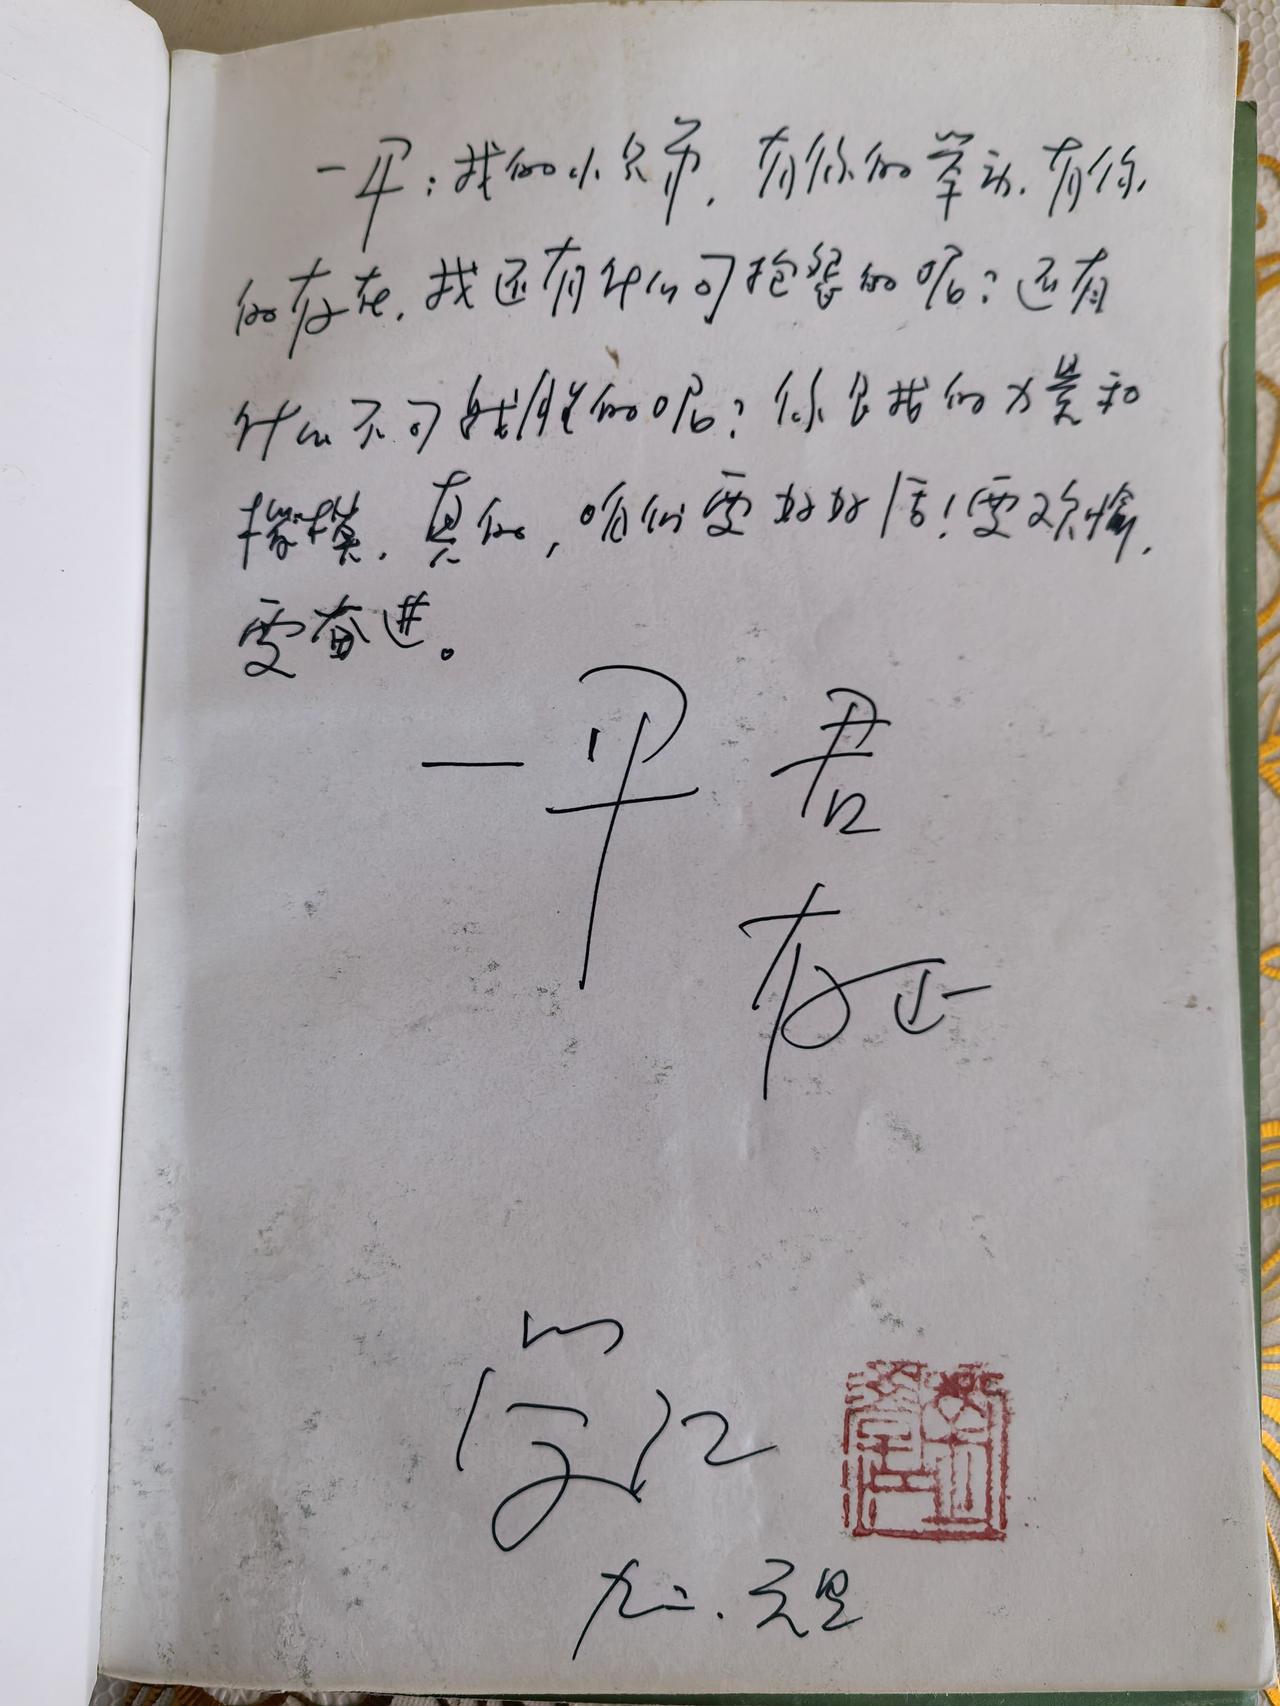 一平：我的小兄弟，有你的举动，有你
的存在，我还有什么可抱怨的呢？还有
什么不可战胜的呢？你是我的力量和
楷模，真的，咱们要好好活！要欢愉，
要奋进。
一平 君
存正
学江
九二．元旦